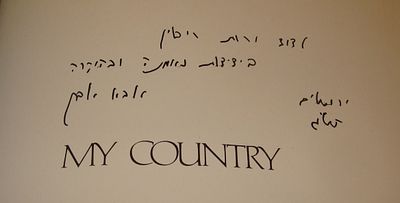 לדוד ורות
בידידות נאמנה ובהוקרה
אבא אבן
ירושלים
MY COUNTRY